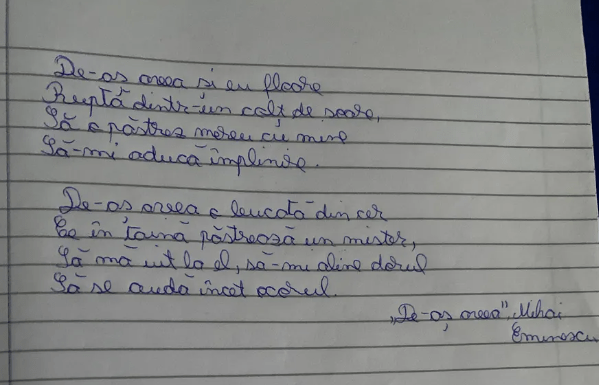 De-aș avea și eu floare
Ruptă dintr-un colț de soare,
Să o păstrez mereu cu mine
Să-mi aducă împlinire.
De-aș avea o bucată din cer
Ce în taină păstrează un mister,
Să mă uit la el, să-mi aline dorul
Să se audă încet acorul.
„De-aș avea", Mihai
Eminescu